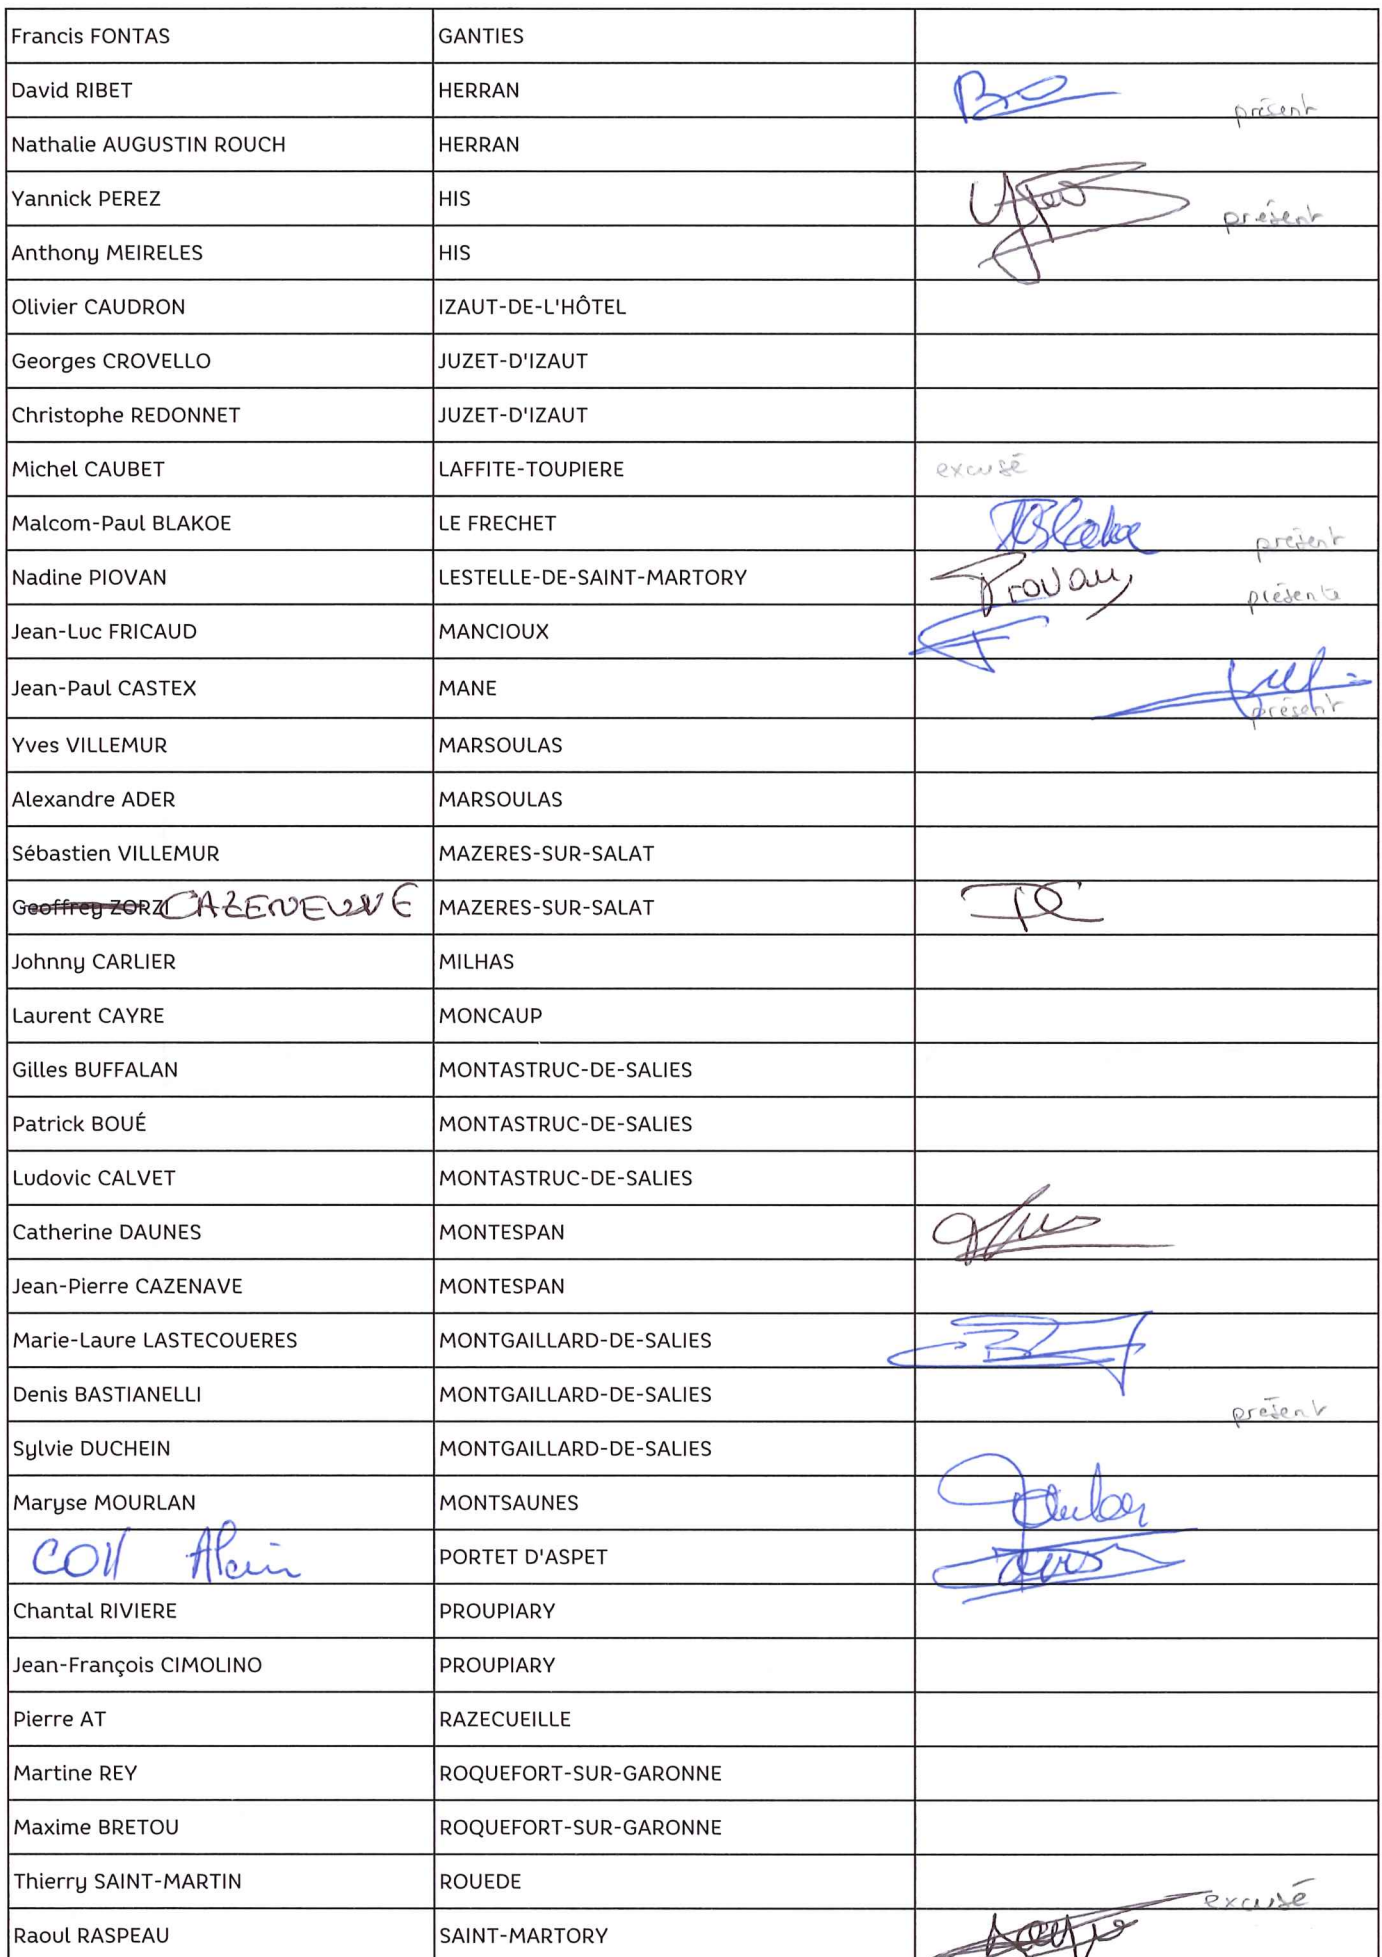 Francis FONTAS GANTIES
David RIBET HERRAN présent
Nathalie AUGUSTIN ROUCH HERRAN
Yannick PEREZ HIS présent
Anthony MEIRELES HIS
Olivier CAUDRON IZAUT-DE-L'HÔTEL
Georges CROVELLO JUZET-D'IZAUT
Christophe REDONNET JUZET-D'IZAUT
Michel CAUBET LAFFITE-TOUPIERE excusé
Malcom-Paul BLAKOE LE FRECHET présent
Nadine PIOVAN LESTELLE-DE-SAINT-MARTORY présente
Jean-Luc FRICAUD MANCIOUX
Jean-Paul CASTEX MANE présent
Yves VILLEMUR MARSOULAS
Alexandre ADER MARSOULAS
Sébastien VILLEMUR MAZERES-SUR-SALAT
Geoffrey ZORZI CAZENEUVE MAZERES-SUR-SALAT
Johnny CARLIER MILHAS
Laurent CAYRE MONCAUP
Gilles BUFFALAN MONTASTRUC-DE-SALIES
Patrick BOUÉ MONTASTRUC-DE-SALIES
Ludovic CALVET MONTASTRUC-DE-SALIES
Catherine DAUNES MONTESPAN
Jean-Pierre CAZENAVE MONTESPAN
Marie-Laure LASTECOUERES MONTGAILLARD-DE-SALIES
Denis BASTIANELLI MONTGAILLARD-DE-SALIES présent
Sylvie DUCHEIN MONTGAILLARD-DE-SALIES
Maryse MOURLAN MONTSAUNES
COll Alain PORTET D'ASPET
Chantal RIVIERE PROUPIARY
Jean-François CIMOLINO PROUPIARY
Pierre AT RAZECUEILLE
Martine REY ROQUEFORT-SUR-GARONNE
Maxime BRETOU ROQUEFORT-SUR-GARONNE
Thierry SAINT-MARTIN ROUEDE excusé
Raoul RASPEAU SAINT-MARTORY